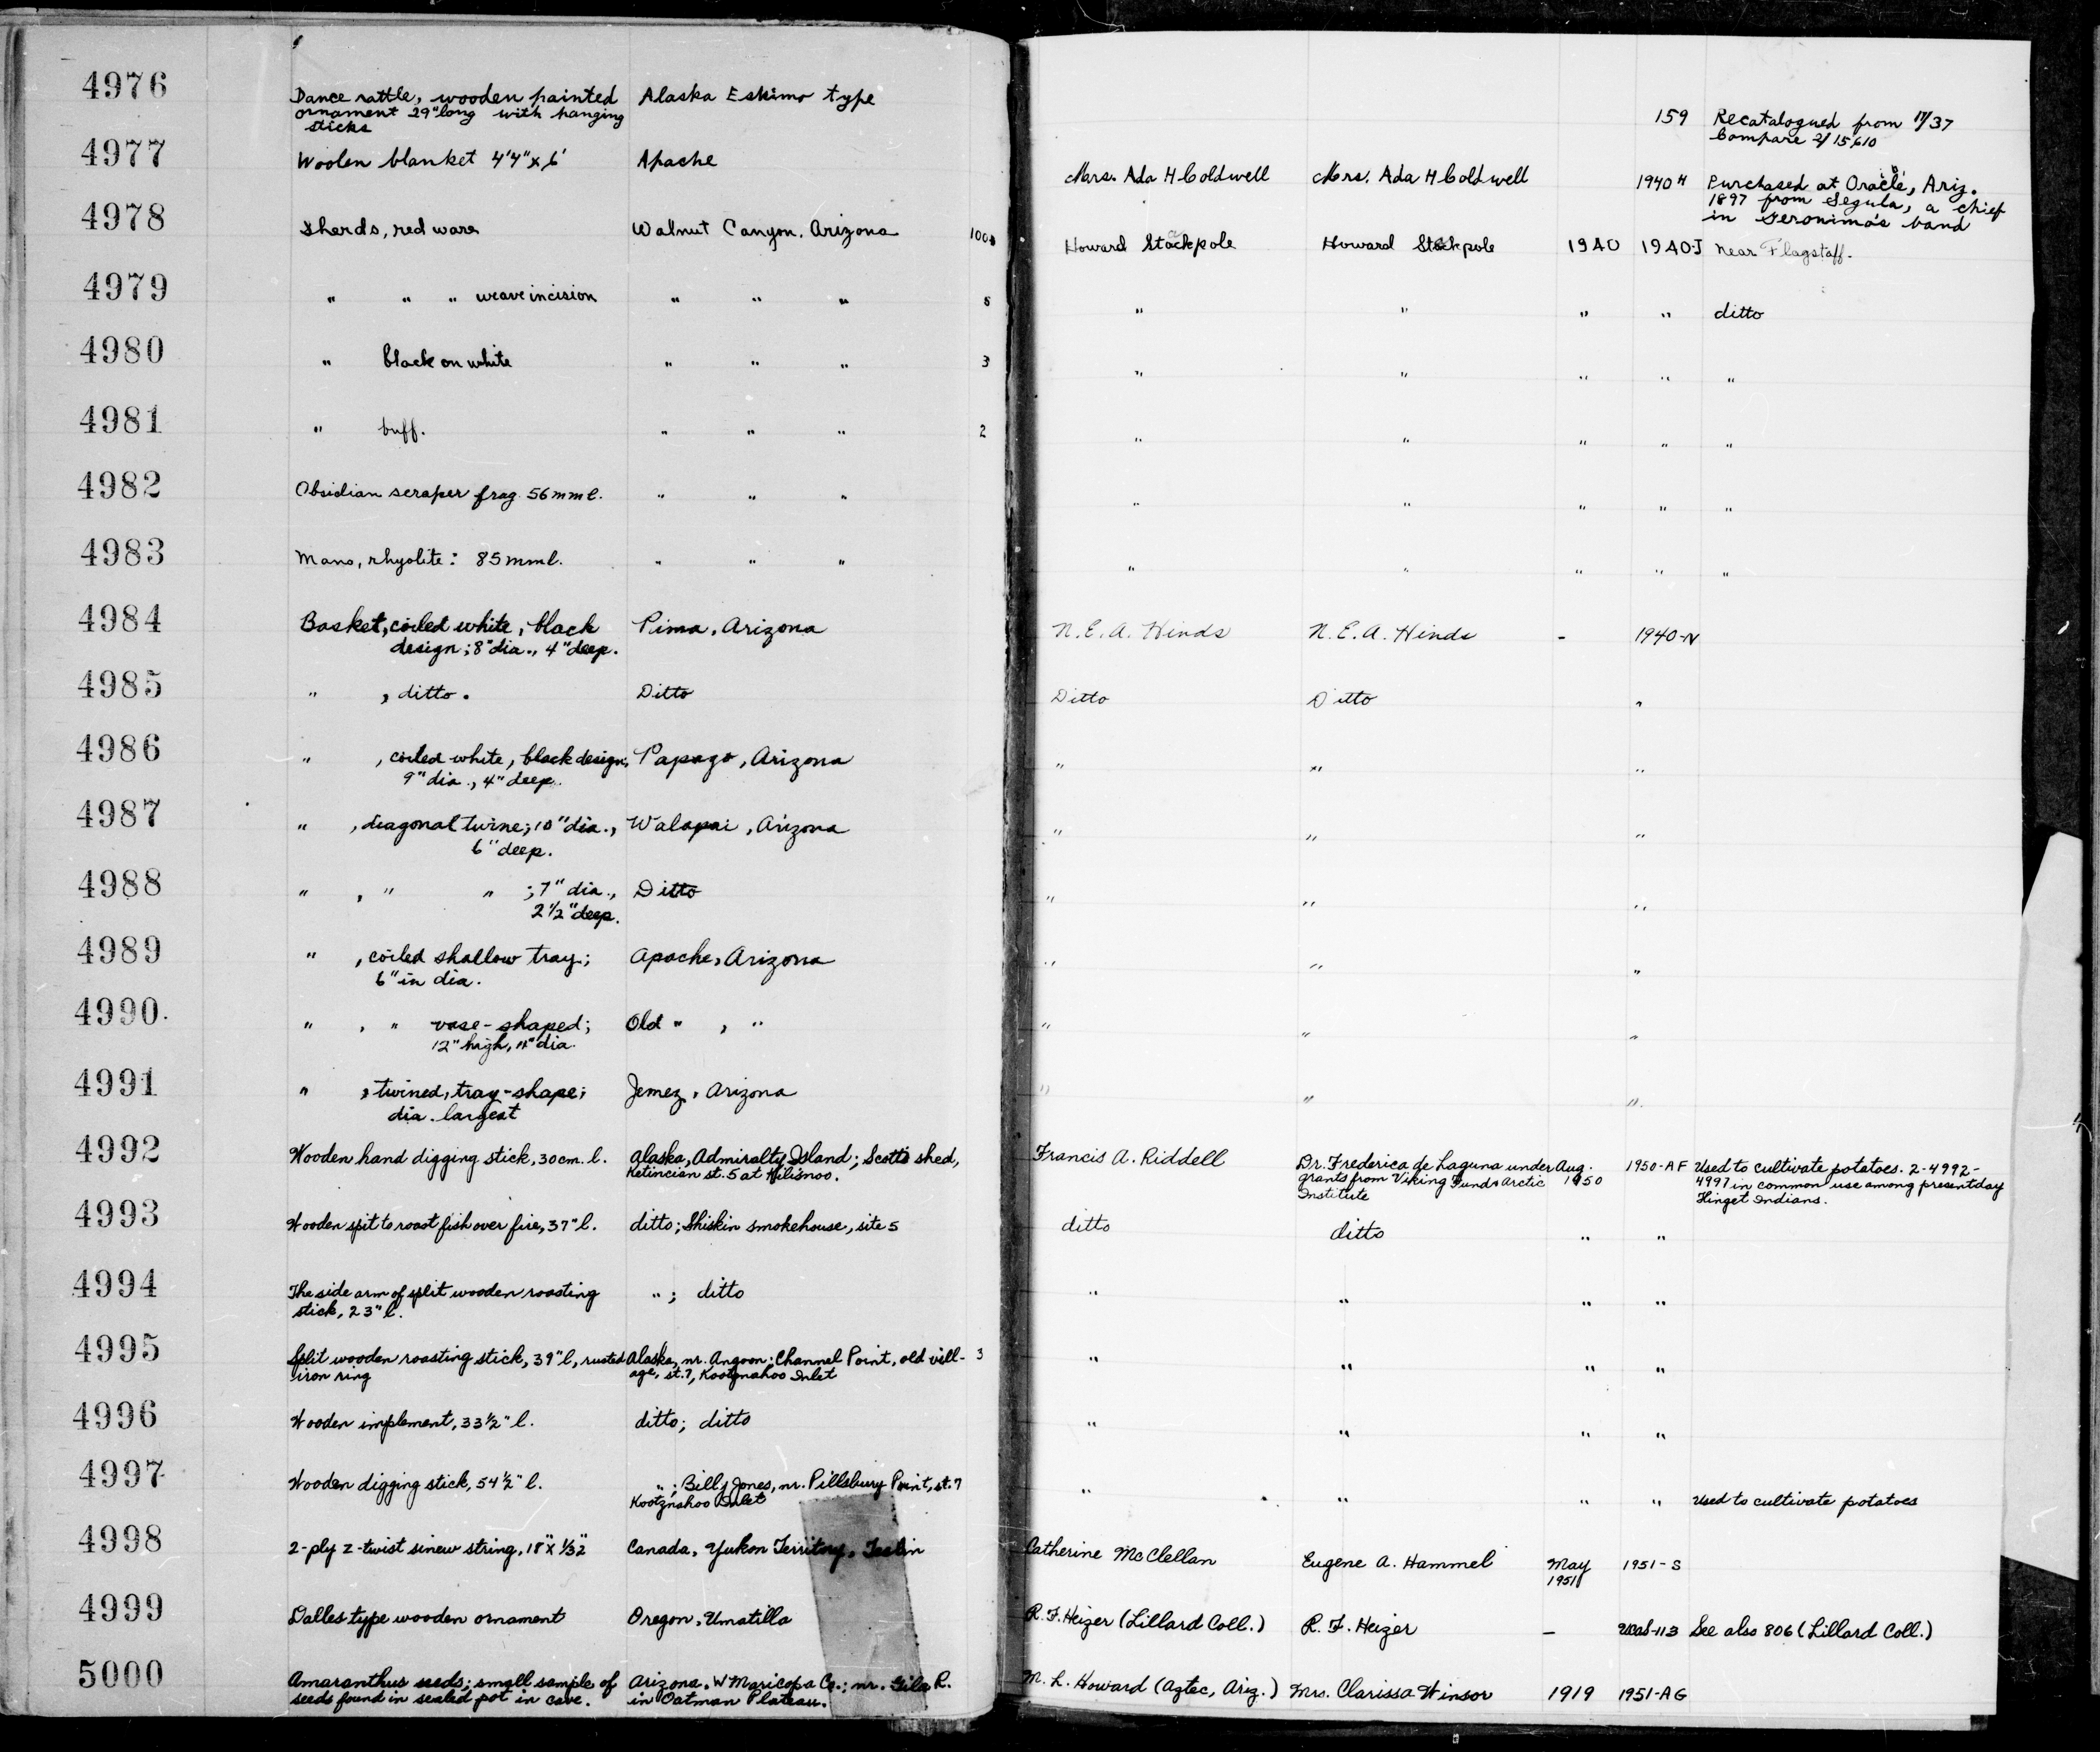 4976 Dance rattle, wooden painted Alaska Eskimo type
ornament 29" long with hanging
sticks
159 Recatalogued from 17/37
Compare 2/15610
4977 Woolen blanket 4'4" x 6' Apache
Mrs. Ada H Coldwell Mrs. Ada H Coldwell 1940 H Purchased at Oracle, Ariz.
1897 from Segula, a chief
in Geronimo's band
4978 Sherds, red ware Walnut Canyon, Arizona
Howard Stackpole Howard Stackpole 1940 1940-J Near Flagstaff.
4979 " " " weave incision " " " 5 " " " " ditto
4980 " black on white " " " 3 " " " " "
4981 " buff. " " " 2 " " " " "
4982 Obsidian scraper frag. 56 mm l. " " " " " " " "
4983 Mano, rhyolite: 85 mm l. " " " " " " " "
4984 Basket, coiled white, black Pima, Arizona N.E.A. Hinds N.E.A. Hinds - 1940-N
design; 8" dia., 4" deep.
4985 " , ditto. Ditto Ditto Ditto "
4986 " , coiled white, black design, Papago, Arizona " " "
9" dia., 4" deep.
4987 " , diagonal twine; 10" dia., Walapai, Arizona " " "
6" deep.
4988 " , " " ; 7" dia., Ditto " " "
2 1/2" deep.
4989 " , coiled shallow tray; Apache, Arizona " " "
6" in dia.
4990. " , " vase-shaped; Old " , " " " "
12" high, 11" dia.
4991 " , twined, tray-shape; Jemez, Arizona " " "
dia. largest
4992 Wooden hand digging stick, 30 cm. l. Alaska, Admiralty Island; Scott's shed,
Ketincian st. 5 at Kilisnoo.
Francis A. Riddell Dr. Frederica de Laguna under Aug. 1950-AF Used to cultivate potatoes. 2-4992-
grants from Viking Fund & Arctic 1950 4997 in common use among present day
Institute Tlinget Indians.
4993 Wooden spit to roast fish over fire, 37" l. ditto; Shiskin smokehouse, site 5 ditto ditto " "
4994 The side arm of split wooden roasting " ; ditto " " " "
stick, 23" l.
4995 Split wooden roasting stick, 39" l, rusted Alaska, nr. Angoon; Channel Point, old vill- 3 " " " "
iron ring age, st. 7, Kootznahoo Inlet
4996 Wooden implement, 33 1/2" l. ditto; ditto " " " "
4997 Wooden digging stick, 54 1/2" l. " ; Billy Jones, nr. Pillsbury Point, st. 7 " " " " Used to cultivate potatoes
Kootznahoo Inlet
4998 2-ply z-twist sinew string, 18" x 1/32" Canada, Yukon Territory, Teslin Catherine McClellan Eugene A. Hammel May 1951-S
1951
4999 Dalles type wooden ornament Oregon, Umatilla R.F. Heizer (Lillard Coll.) R. F. Heizer - UCAS-113 See also 806 (Lillard Coll.)
5000 Amaranthus seeds; small sample of Arizona, W Maricopa Co.; nr. Gila R. M. L. Howard (Aztec, Ariz.) Mrs. Clarissa Winsor 1919 1951-AG
seeds found in sealed pot in cave. in Oatman Plateau.